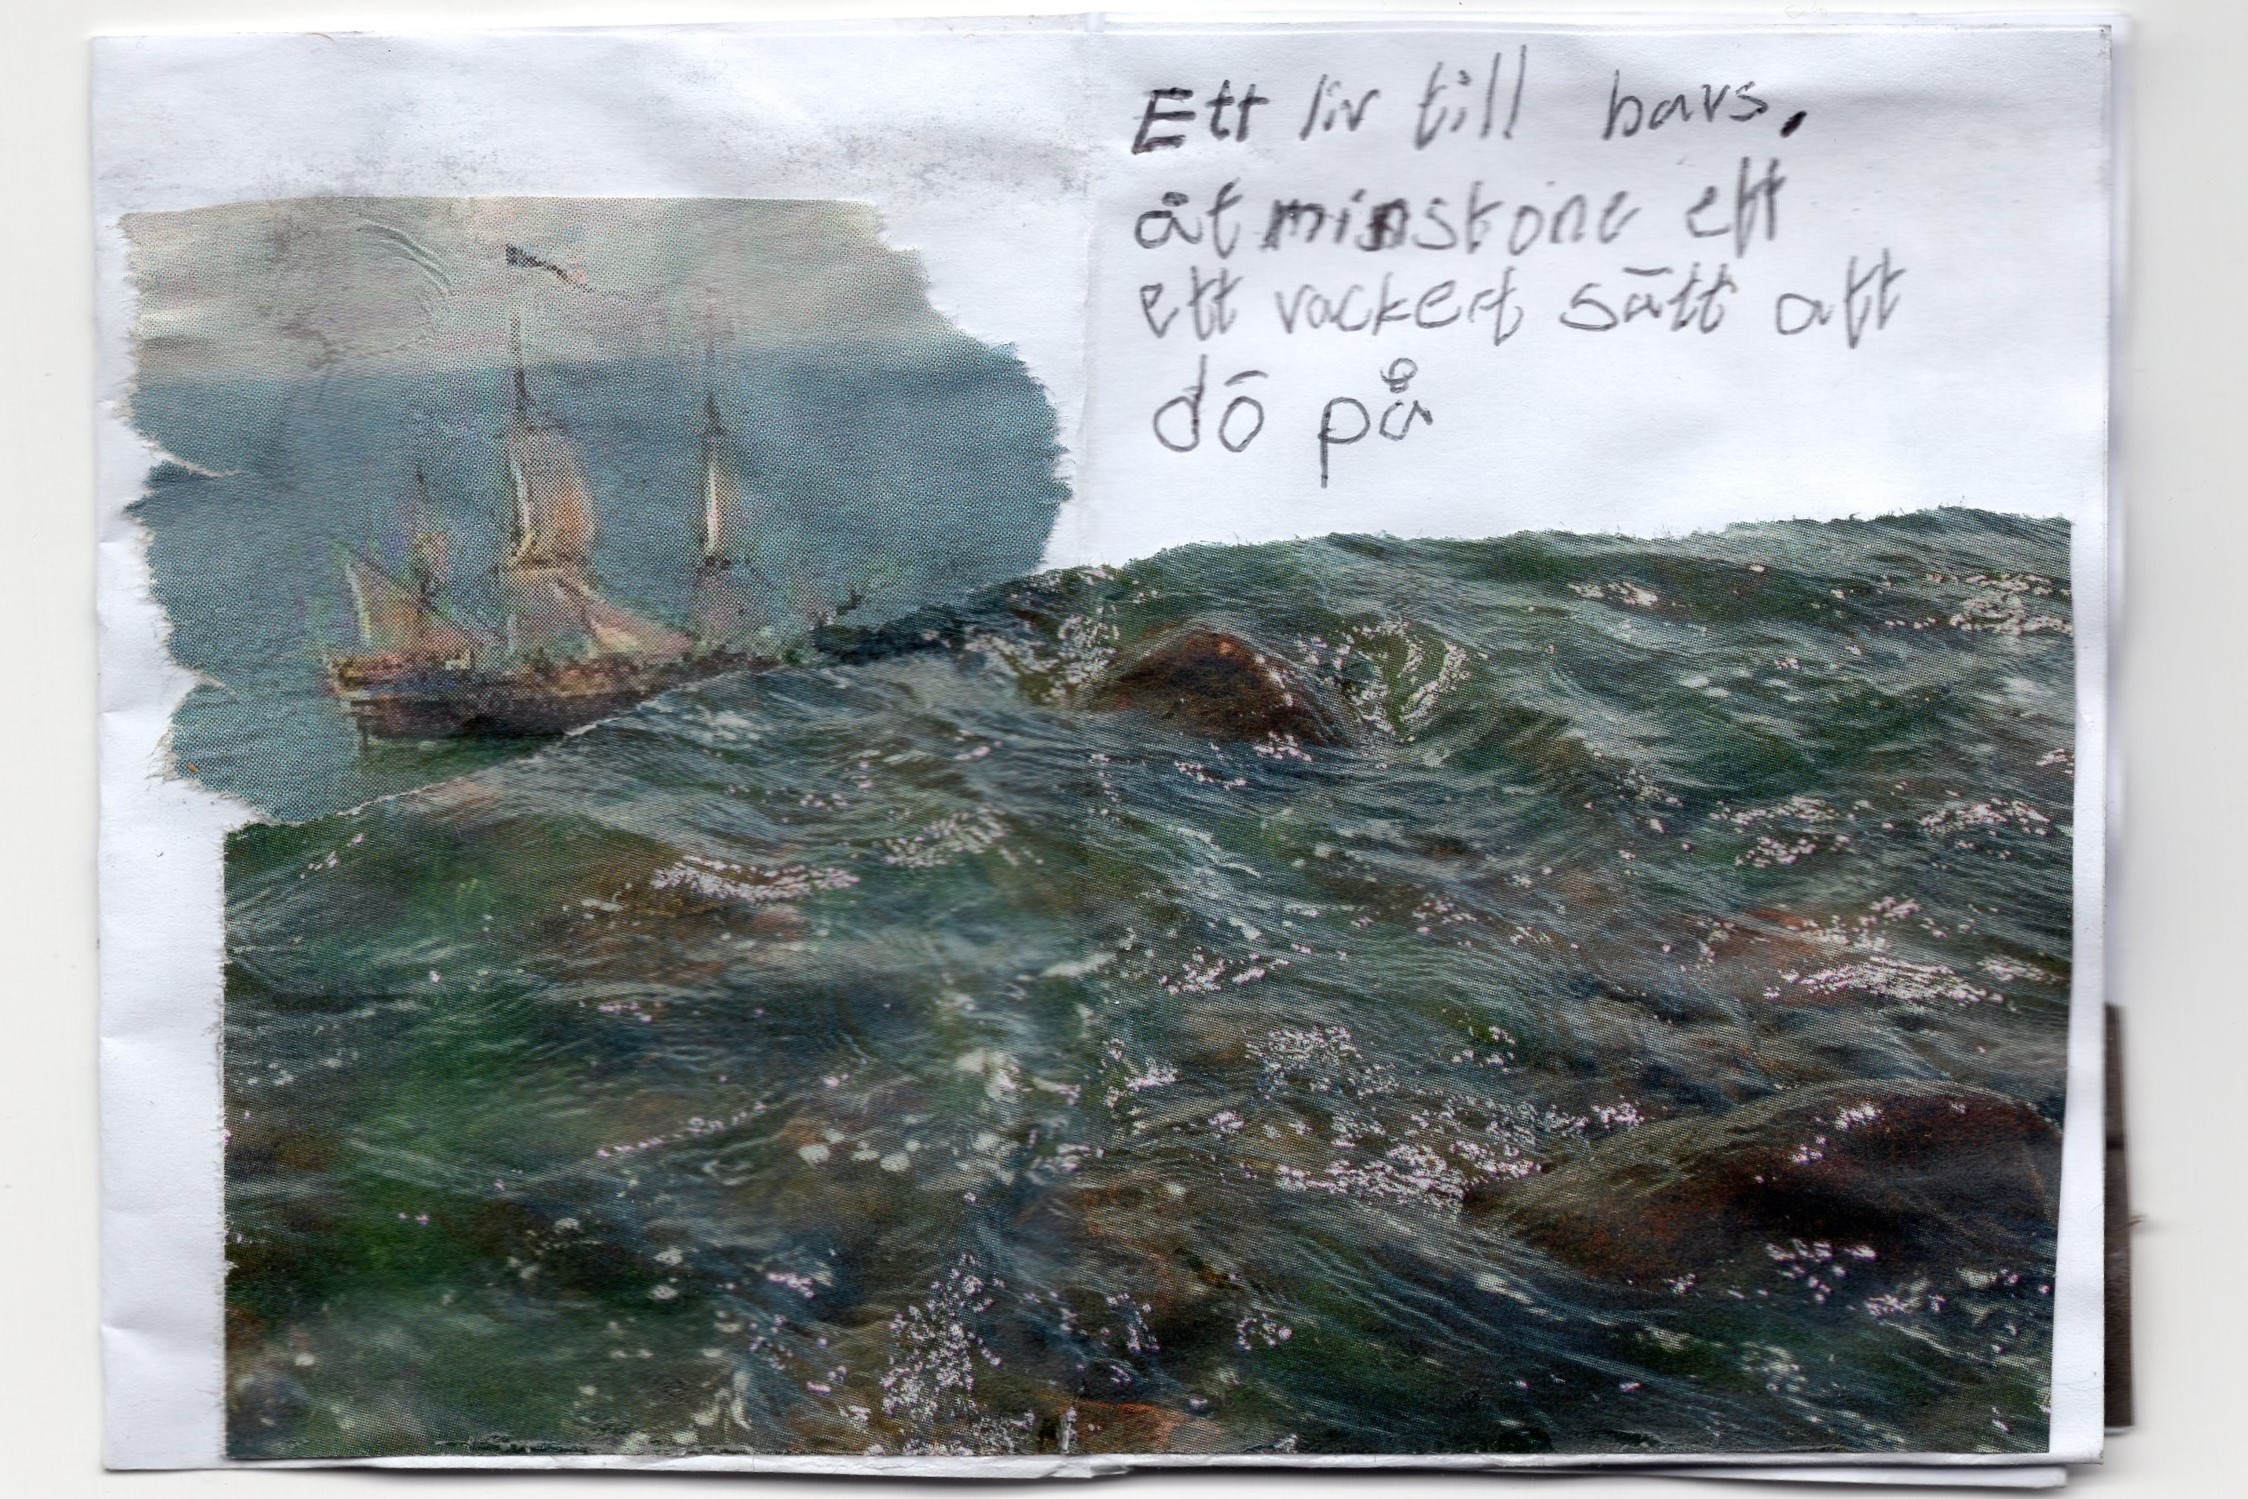 Ett liv till havs,
åtminstone ett
ett vackert sätt att
dö på